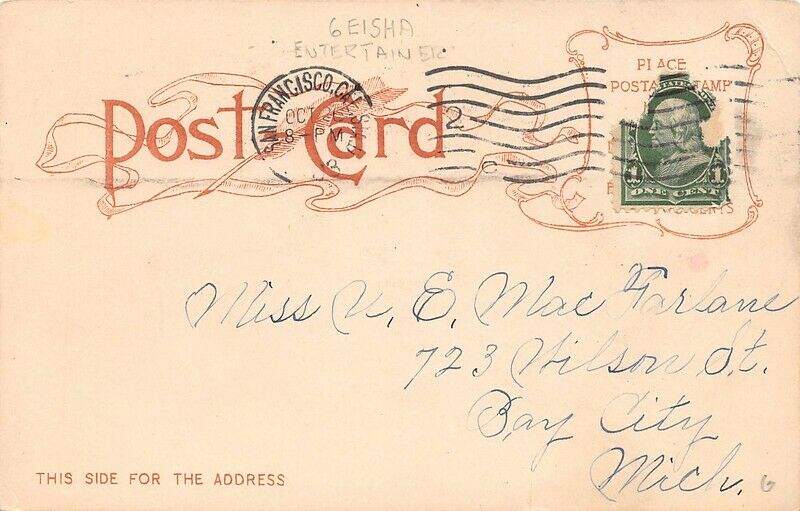 GEISHA
ENTERTAINER
Post Card
SAN FRANCISCO, CAL.
OCT
8
PM
2
PLACE
POSTAGE STAMP
ONE CENT
1 1
CENTS
Miss V. E. MacFarlane
723 Wilson St.
Bay City
Mich.
THIS SIDE FOR THE ADDRESS
6